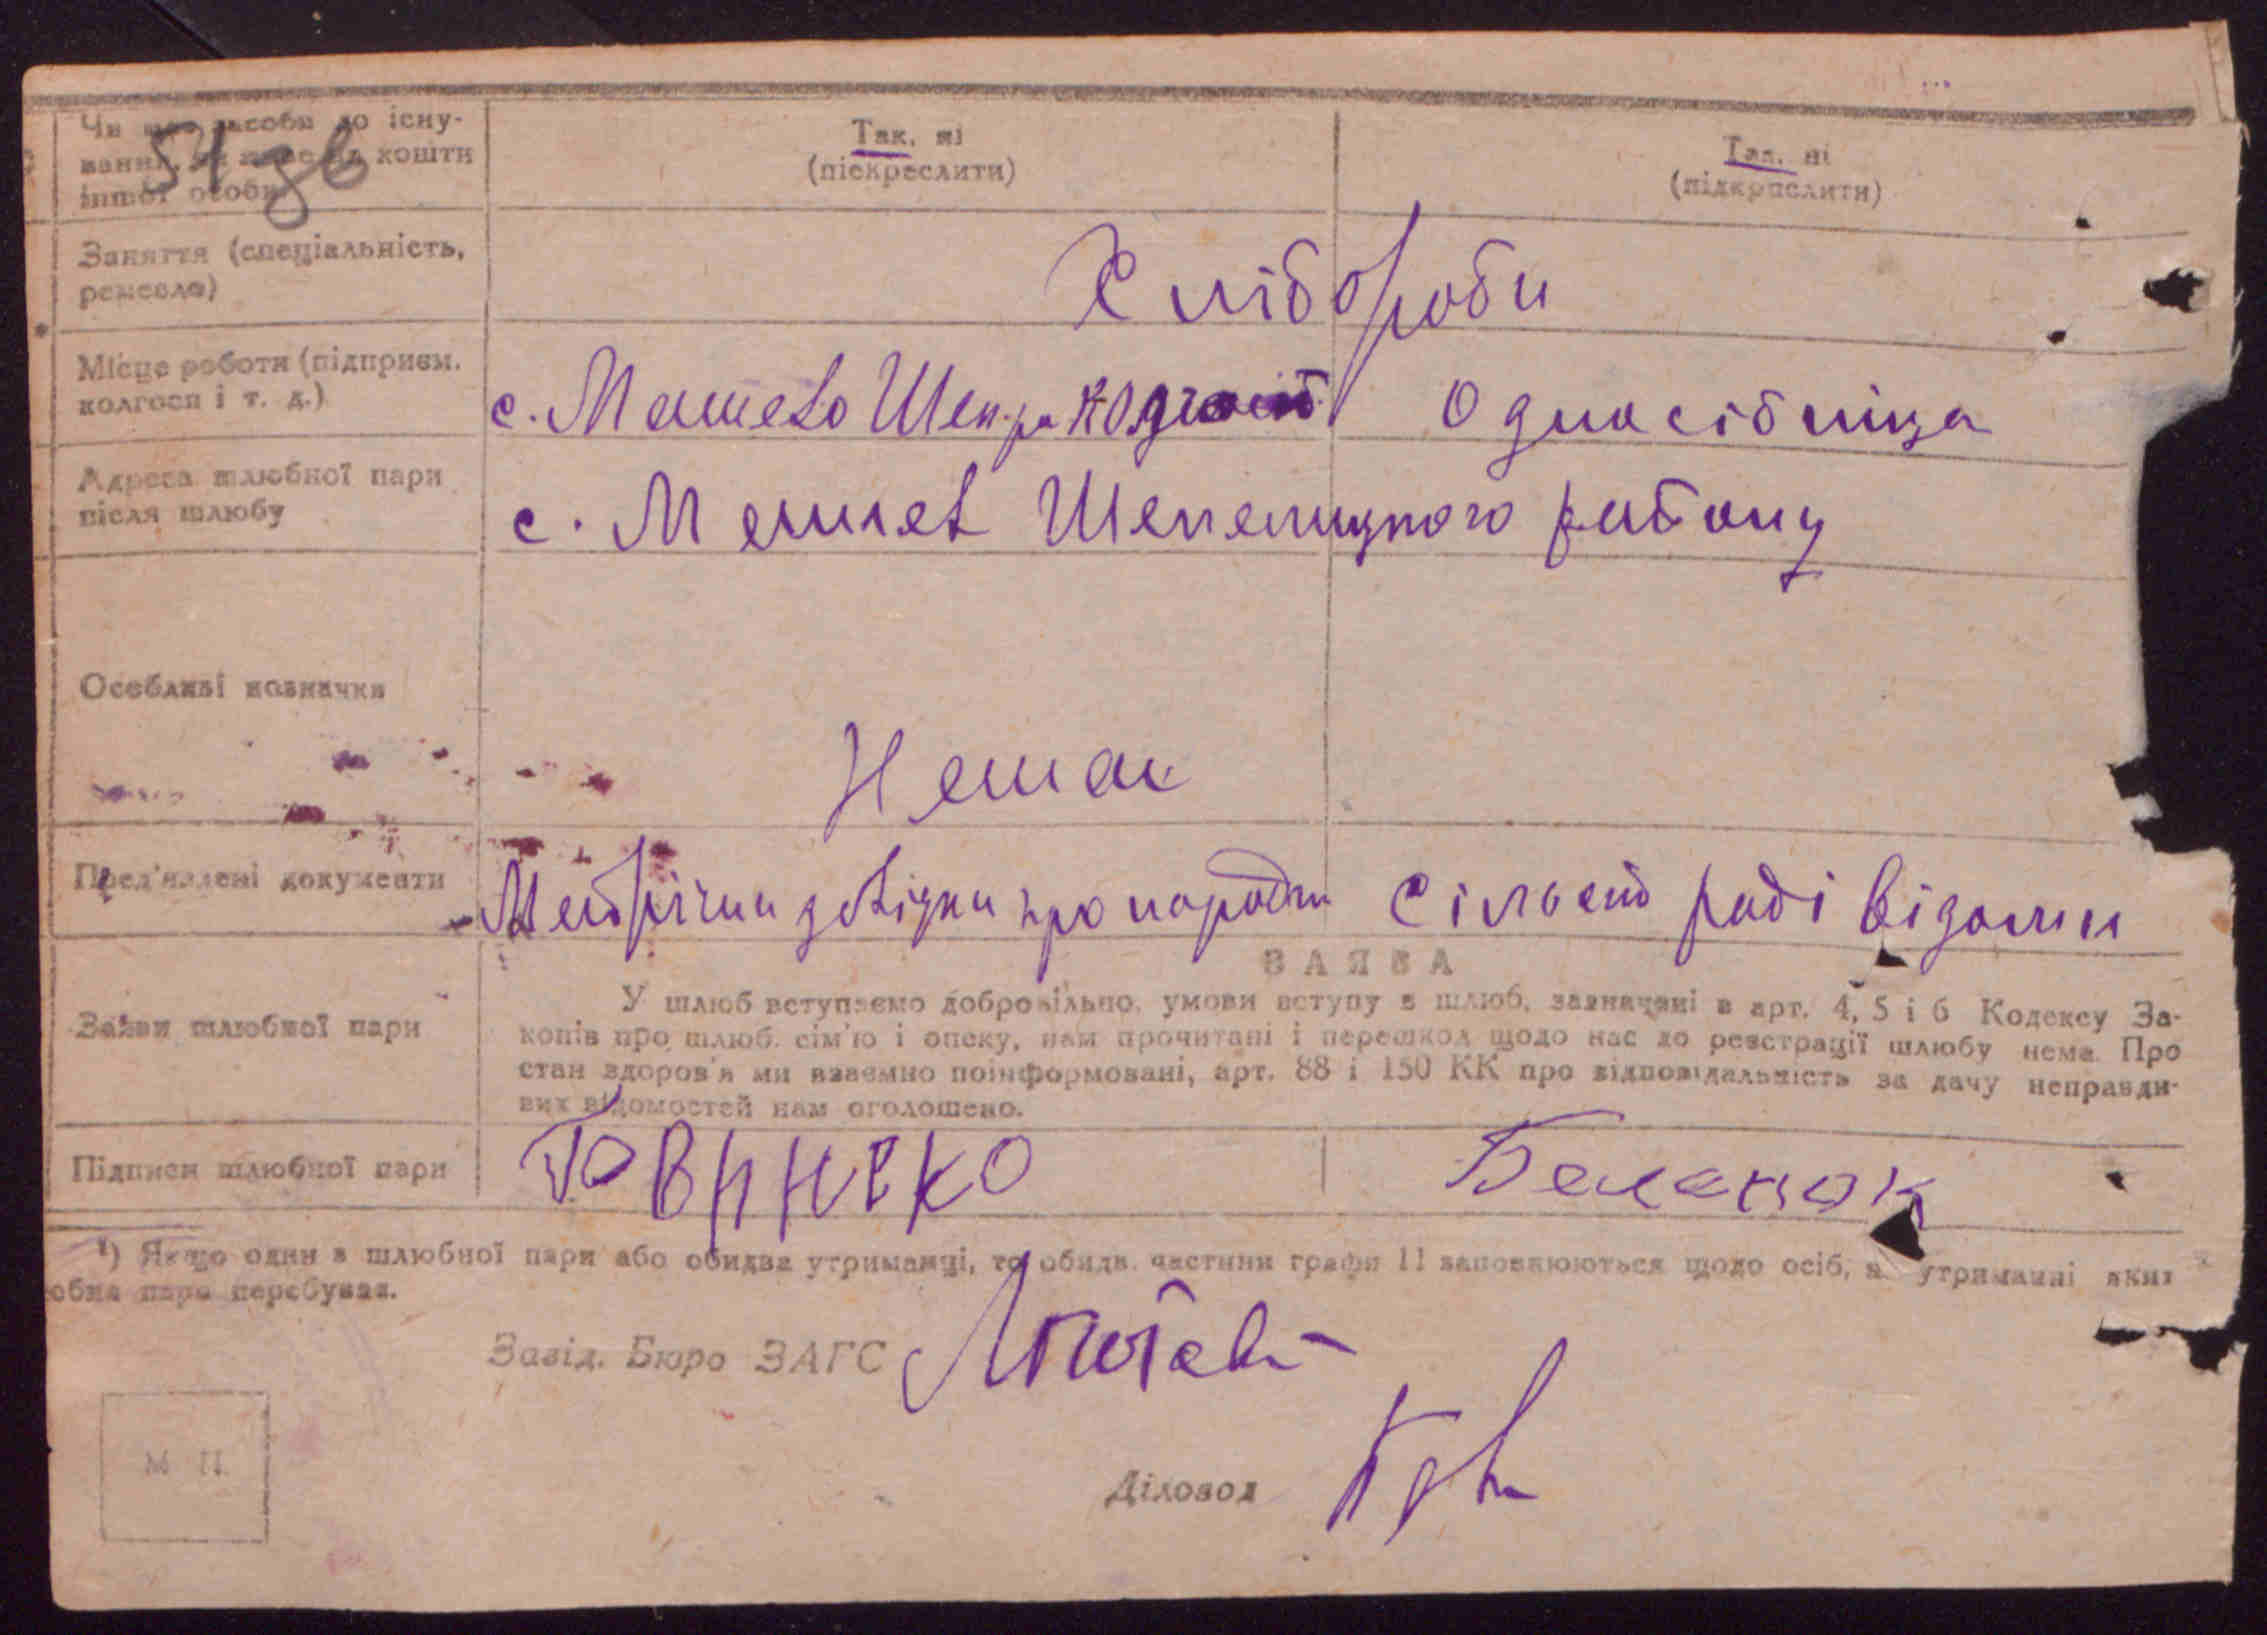 54 зв
Чи має засоби до існу-
вання, чи живе на кошти
іншої особи
Так, ні
(піскреслити)
Так, ні
(підкрпслити)
Заняття (спеціальність,
ремесло)
Хлібороби
Місце роботи (підприєм.
колгосп і т. д.)
с. Машево Шеп. р
Одноосібниця
Адреса шлюбної пари
після шлюбу
с. Машев Шепелицького району
Особливі назначки
Немає
Пред'явлені документи
Метричні довідки про народж. Сільськ раді відомі
Заяви шлюбної пари
ЗАЯВА
У шлюб вступаємо добровільно, умови вступу в шлюб, зазначені в арт. 4, 5 і 6 Кодексу За-
конів про шлюб, сім'ю і опеку, нам прочитані і перешкод щодо нас до реєстрації шлюбу нема. Про
стан здоров'я ми взаємно поінформовані, арт. 88 і 150 КК про відповідальність за дачу неправди-
вих відомостей нам оголошено.
Підписи шлюбної пари
¹) Якщо один з шлюбної пари або обидва утриманці, то обидв. частини графи 11 заповнюються щодо осіб, на утриманні яких
обна пара перебуває.
Завід. Бюро ЗАГС
М П.
Діловод